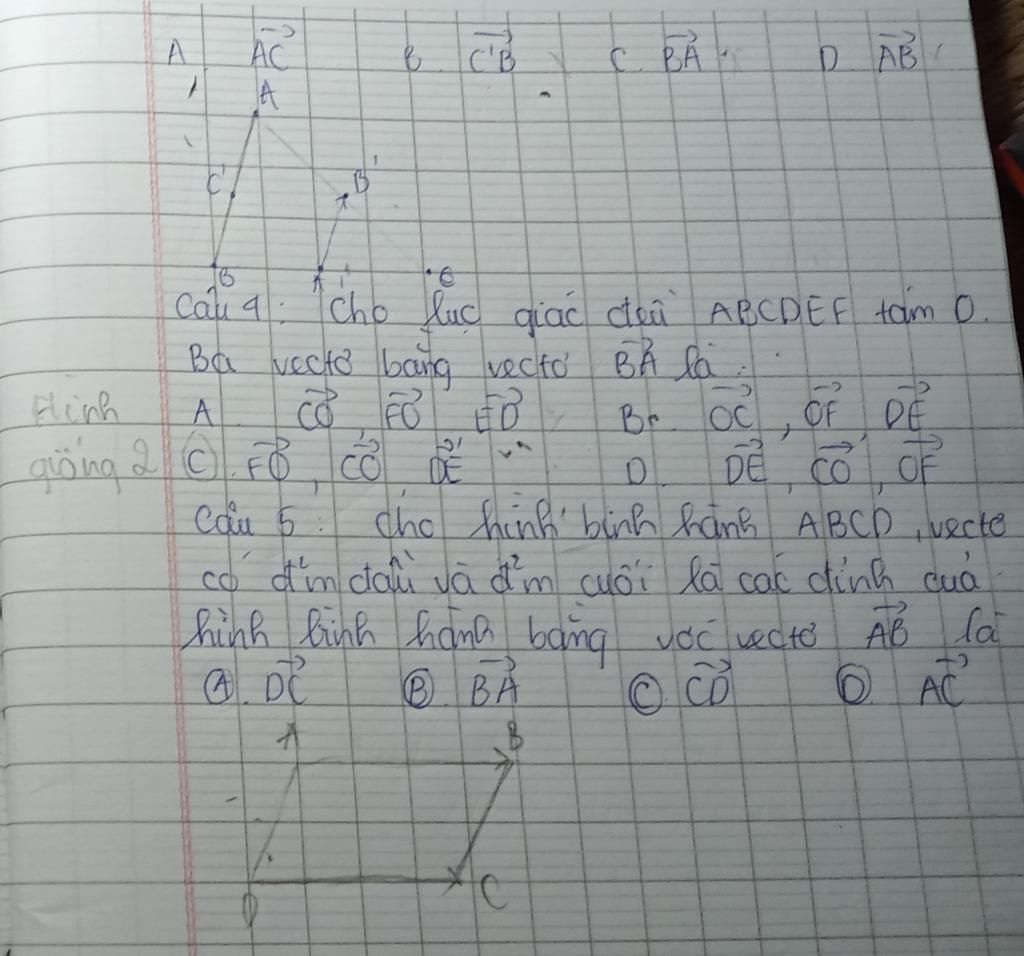 A. AC B. C'B C. BA D. AB
A
C' B'
B A' C
Câu 4: Cho lục giác đều ABCDEF tâm O.
Ba vectơ bằng vectơ BA là:
Hình A. CO, FO, ED B. OC, OF, DE
giống 2 C. FO, CO, DE D. DE, CO, OF
Câu 5: Cho hình bình hành ABCD, vectơ
có đ²m đầu và đ²m cuối là các đỉnh của
hình bình hành bằng với vectơ AB là
A. DC B. BA C. CD D. AC
A B
D C